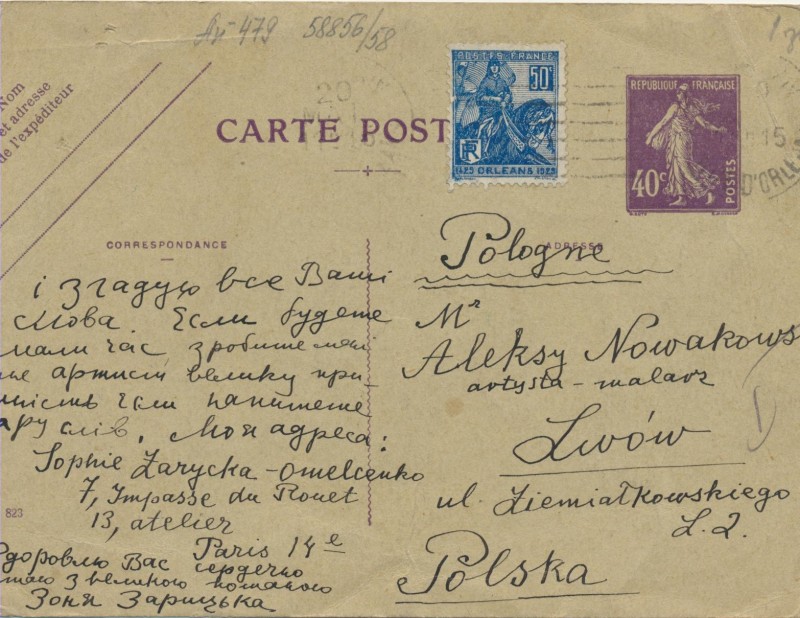 Ар-479 58856/58
Nom
et adresse
de l'expéditeur
CARTE POST
POSTES FRANCE
50c
RF
1429 ORLEANS 1929
RÉPUBLIQUE FRANÇAISE
40c
POSTES
20
15
D'ORLÉ
CORRESPONDANCE
ADRESSE
і згадую все Ваші
слова. Если будете
мали час зробите мені
артисти велику при-
если напишете
пару слів. Моя адреса:
Sophie Zarycka-Omelcenko
7, Impasse du Rouet
13, atelier
Paris 14e
Здоровлю Вас сердечно
з великою пошаною
Зоня Зарицька
823
Pologne
Mr
Aleksy Nowakows
artysta-malarz
Lwów
ul. Ziemiałkowskiego
L. 2.
Polska